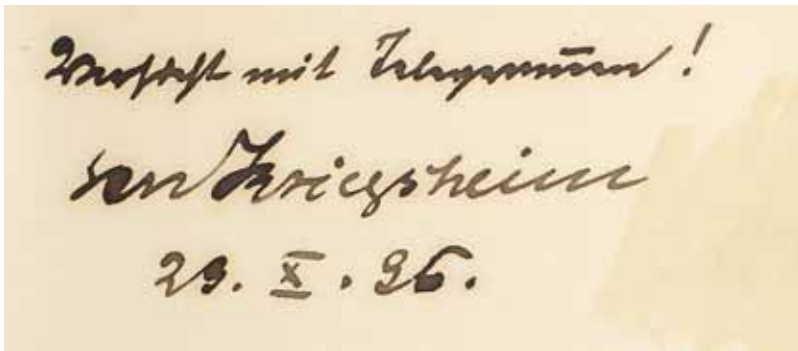 Vorsicht mit Telegrammen!
von Kriegsheim
29. X. 96.